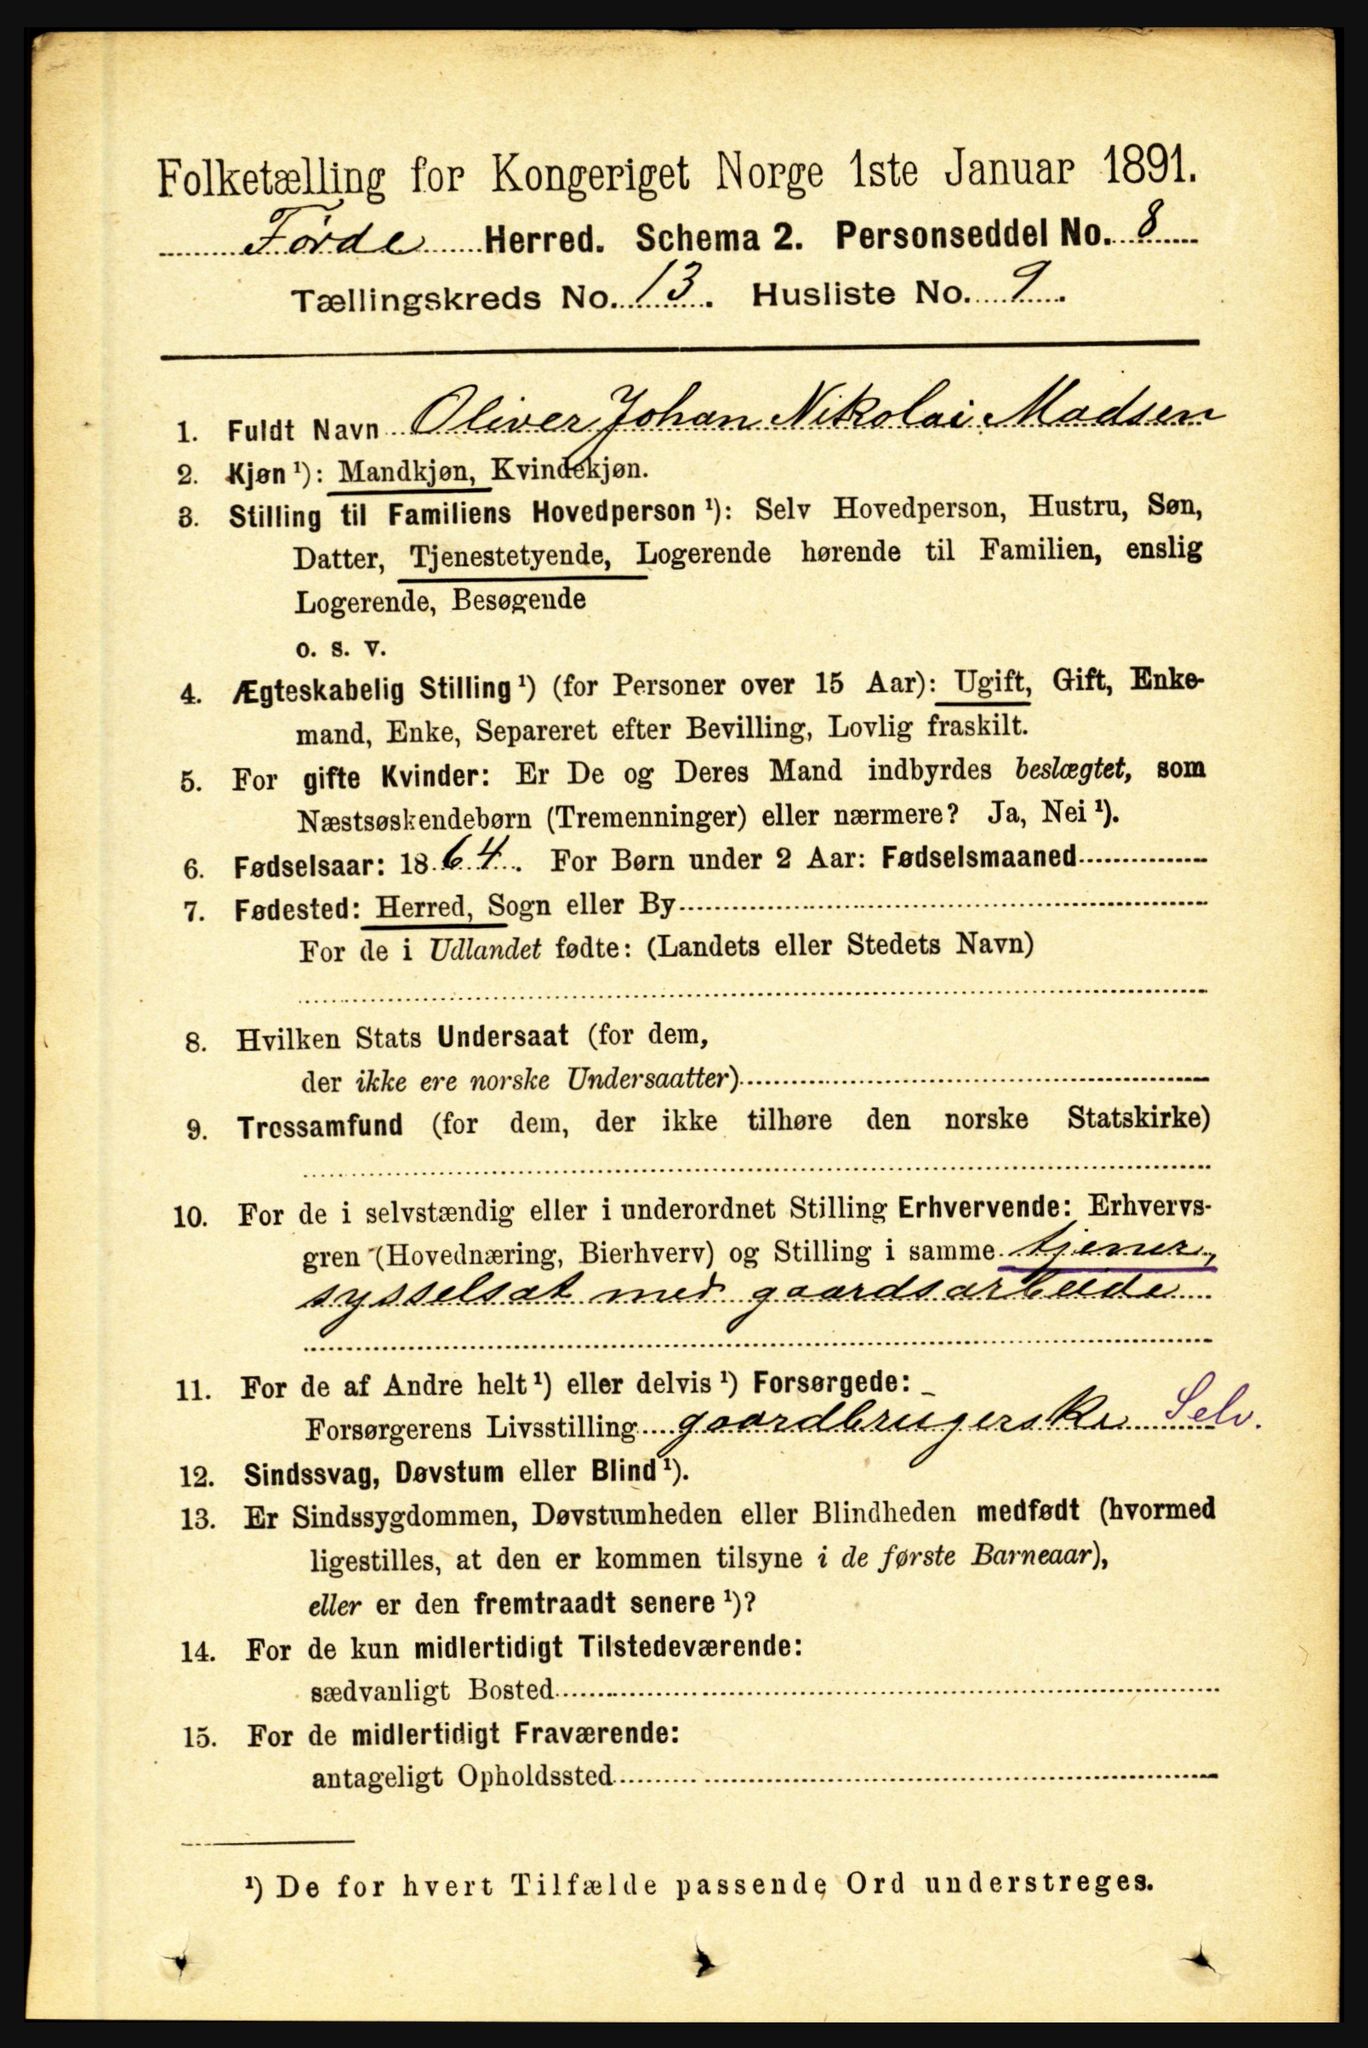 Folketælling for Kongeriget Norge 1ste Januar 1891.
Førde Herred. Schema 2. Personseddel No. 8
Tællingskreds No. 13. Husliste No. 9.
1. Fuldt Navn Oliver Johan Nikolai Madsen
2. Kjøn ¹): Mandkjøn, Kvindekjøn.
3. Stilling til Familiens Hovedperson ¹): Selv Hovedperson, Hustru, Søn,
Datter, Tjenestetyende, Logerende hørende til Familien, enslig
Logerende, Besøgende
o. s. v.
4. Ægteskabelig Stilling ¹) (for Personer over 15 Aar): Ugift, Gift, Enke-
mand, Enke, Separeret efter Bevilling, Lovlig fraskilt.
5. For gifte Kvinder: Er De og Deres Mand indbyrdes beslægtet, som
Næstsøskendebørn (Tremenninger) eller nærmere? Ja, Nei ¹).
6. Fødselsaar: 1864. For Børn under 2 Aar: Fødselsmaaned
7. Fødested: Herred, Sogn eller By
For de i Udlandet fødte: (Landets eller Stedets Navn)
8. Hvilken Stats Undersaat (for dem,
der ikke ere norske Undersaatter)
9. Trossamfund (for dem, der ikke tilhøre den norske Statskirke)
10. For de i selvstændig eller i underordnet Stilling Erhvervende: Erhvervs-
gren (Hovednæring, Bierhverv) og Stilling i samme tjener,
sysselsat med gaardsarbeide
11. For de af Andre helt ¹) eller delvis ¹) Forsørgede:
Forsørgerens Livsstilling gaardbrugerske Selv.
12. Sindssvag, Døvstum eller Blind ¹).
13. Er Sindssygdommen, Døvstumheden eller Blindheden medfødt (hvormed
ligestilles, at den er kommen tilsyne i de første Barneaar),
eller er den fremtraadt senere ¹)?
14. For de kun midlertidigt Tilstedeværende:
sædvanligt Bosted
15. For de midlertidigt Fraværende:
antageligt Opholdssted
¹) De for hvert Tilfælde passende Ord understreges.